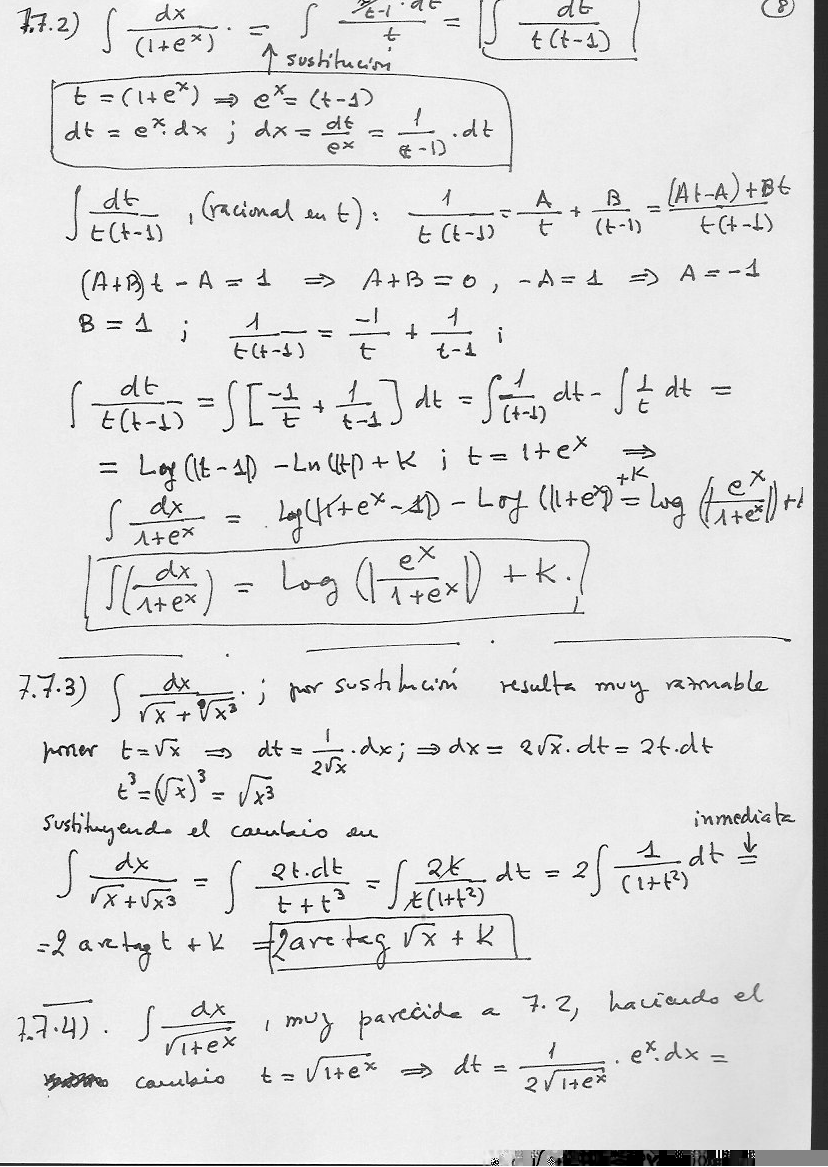 7.7.2) ∫ dx/(1+eˣ) = ∫ 1/(t-1)·dt / t = ∫ dt/t(t-1)
↑ sustitución
t = (1+eˣ) ⇒ eˣ = (t-1)
dt = eˣ·dx ; dx = dt/eˣ = 1/(t-1) · dt
∫ dt/t(t-1) , (racional en t): 1/t(t-1) = A/t + B/(t-1) = (At-A)+Bt / t(t-1)
(A+B)t - A = 1 ⇒ A+B = 0 , -A = 1 ⇒ A = -1
B = 1 ; 1/t(t-1) = -1/t + 1/t-1 ;
∫ dt/t(t-1) = ∫ [-1/t + 1/t-1] dt = ∫ 1/(t-1) dt - ∫ 1/t dt =
= Log(|t-1|) - Ln(|t|) + K ; t = 1+eˣ ⇒
∫ dx/1+eˣ = log(|1+eˣ-1|) - Log(|1+eˣ|) +K = log(|eˣ/1+eˣ|) +
∫(dx/1+eˣ) = Log(|eˣ/1+eˣ|) + K.
7.7.3) ∫ dx/√x+√x³ ; por sustitución resulta muy razonable
poner t=√x ⇒ dt = 1/2√x · dx ; ⇒ dx = 2√x·dt = 2t·dt
t³ = (√x)³ = √x³
sustituyendo el cambio en inmediata
∫ dx/√x+√x³ = ∫ 2t·dt/t+t³ = ∫ 2t/t(1+t²) dt = 2∫ 1/(1+t²) dt =
= 2 arc tag t + K = 2 arc tag √x + K
7.7.4). ∫ dx/√1+eˣ , muy parecida a 7.2, haciendo el
cambio t = √1+eˣ ⇒ dt = 1/2√1+eˣ · eˣ·dx =
(8)